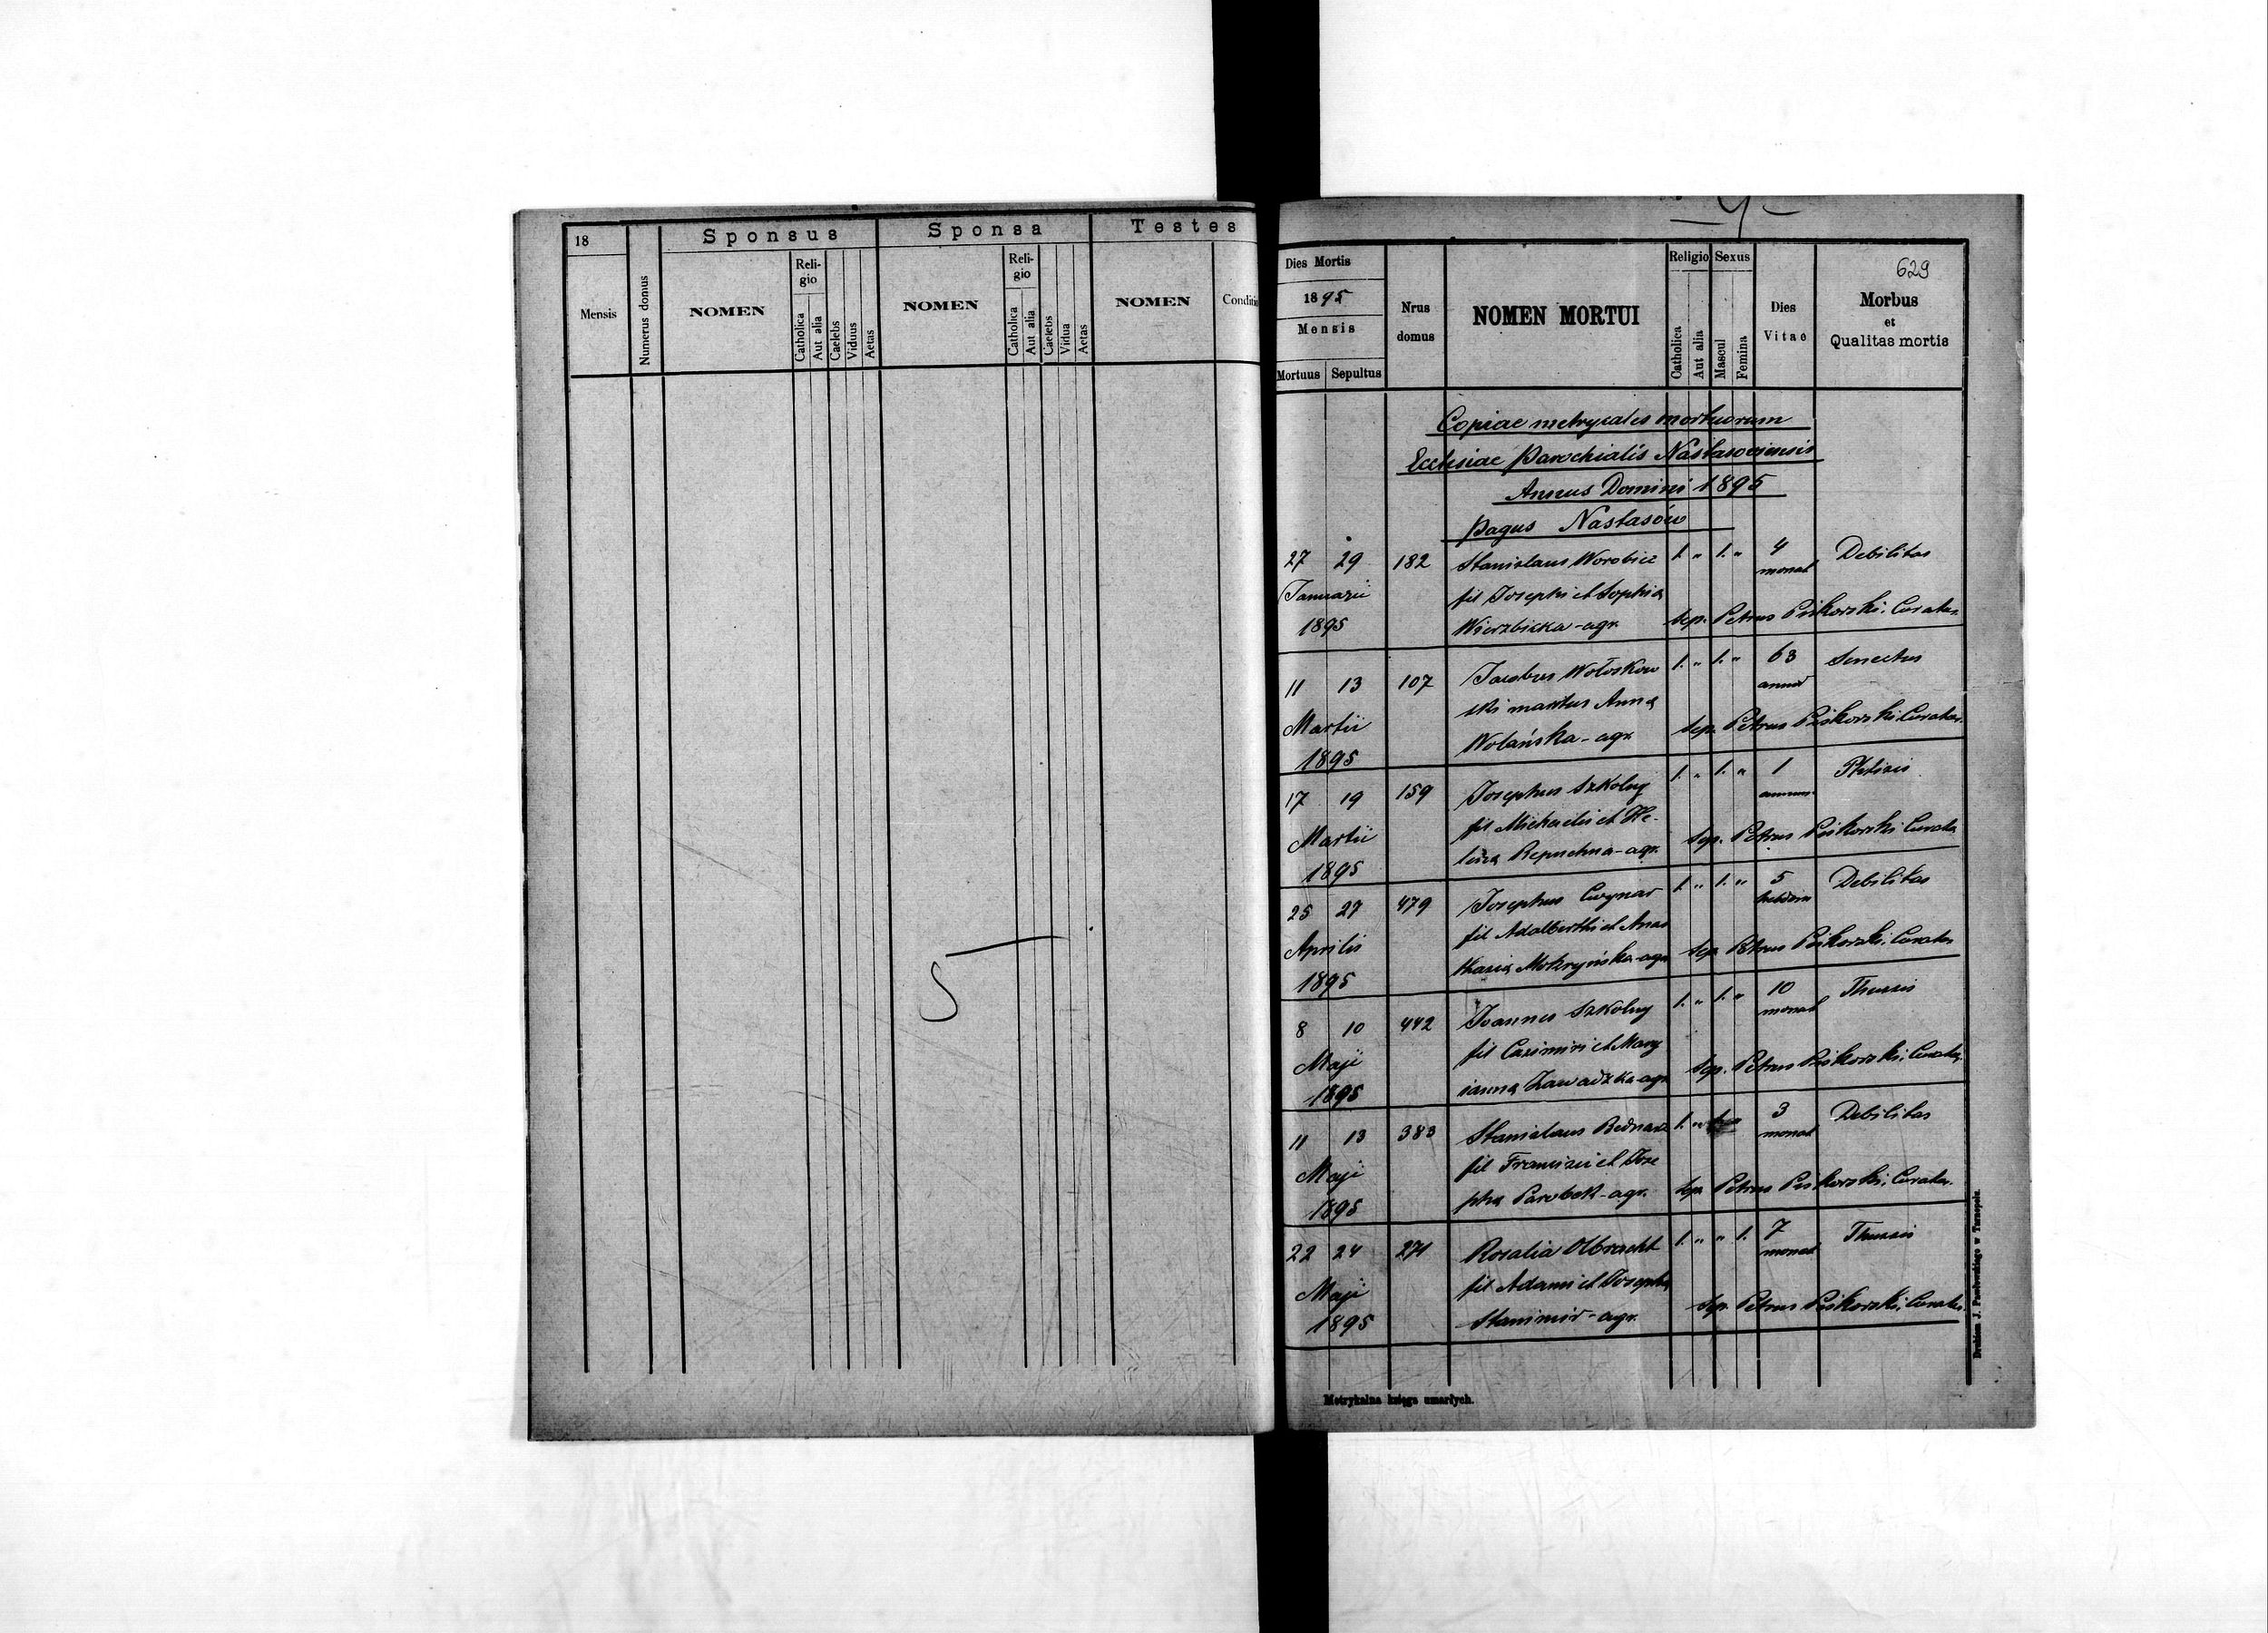 18
Mensis
Numerus domus
Sponsus
NOMEN
Reli-
gio
Catholica
Aut alia
Caelebs
Viduus
Aetas
Sponsa
NOMEN
Reli-
gio
Catholica
Aut alia
Caelebs
Vidua
Aetas
Testes
NOMEN
Conditi
5
629
Dies Mortis
1895
Mensis
Mortuus Sepultus
Nrus
domus
NOMEN MORTUI
Religio
Catholica
Aut alia
Sexus
Mascul
Femina
Dies
Vitae
Morbus
et
Qualitas mortis
Copiae metrycales mortuorum
Ecclesiae Parochialis Nastasoviensis
Annus Domini 1895
Pagus Nastasów
27 29 182 Stanislaus Worobiec 1. " 1. " 4 Debilitas
monat
Januarii fil Josephi et Sophia
1895 Wierzbicka - agr. sep. Petrus Piskorski, Curatus
11 13 107 Jacobus Wołoskow 1. " 1. " 63 Senectus
ski maritus Anna
Martii
1895 Wolańska - agr. sep. Petrus Piskorski Curatus
17 19 159 Josephus Szkolny 1. " 1. " 1 Phtisis
annus
Martii fil Michaelis et He-
1895 lena - agr. sep. Petrus Piskorski Curatus
25 27 479 Josephus Cwynar 1. " 1. " 5 Debilitas
Aprilis fil Adalberthi et Anas
1895 thasia Mokrzyńska - agr sep. Petrus Piskorski, Curatus
8 10 442 Joannes Szkolny 1. " 1. " 10 Thussis
monat
Maji fil Casimiri et Mary
1895 ianna Zawadzka - agr sep. Petrus Piskorski, Curatus
11 13 383 Stanislaus Bednarz 1. " 3 Debilitas
monat
Maji fil Francisci et Jose
1895 pha Parobek - agr. sep. Petrus Piskorski, Curatus
22 24 271 Rosalia Olbracht 1. " " 1. 7 Thussis
monat
Maji fil Adami et Josepha
1895 Stanimir - agr. sep. Petrus Piskorski, Curatus
Metrykalna księga umarłych.
Drukiem J. Pawłowskiego w Tarnopolu.